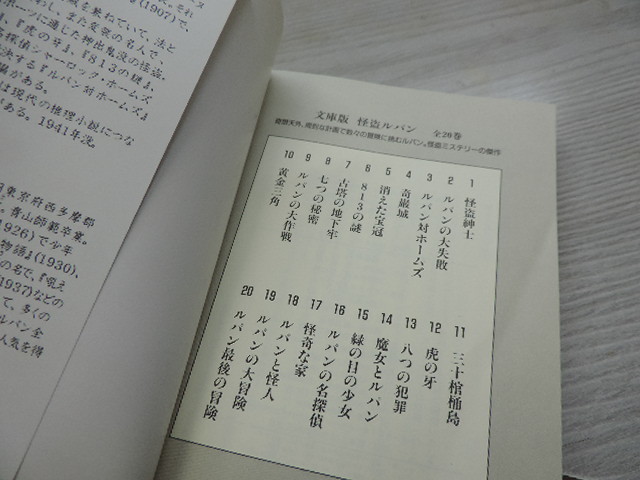 文庫版 怪盗ルパン 全20巻
奇想天外、奇抜な計画で数々の冒険に挑むルパン。怪盗ミステリーの傑作
1 怪盗紳士
2 ルパンの大失敗
3 ルパン対ホームズ
4 奇巌城
5 消えた宝冠
6 813の謎
7 古塔の地下牢
8 七つの秘密
9 ルパンの大作戦
10 黄金三角
11 三十棺桶島
12 虎の牙
13 八つの犯罪
14 魔女とルパン
15 緑の目の少女
16 ルパンの名探偵
17 怪奇な家
18 ルパンと怪人
19 ルパンの大冒険
20 ルパン最後の冒険
(1907)で、
を兼ねていて、法と
われ、また変装の名人で、
ポーツに通じた神出鬼没の怪盗。
『虎の牙』、『813の謎』、
名探偵シャーロック・ホームズ
決する『ルパン対ホームズ』
がある。
は現代の推理小説につな
がある。1941年没。
東京府西多摩郡
青山師範卒業。
(1926)で少年
物語』(1930)、
の名で、『吼え
(1937)などの
て、多くの
ルパン全
人気を得